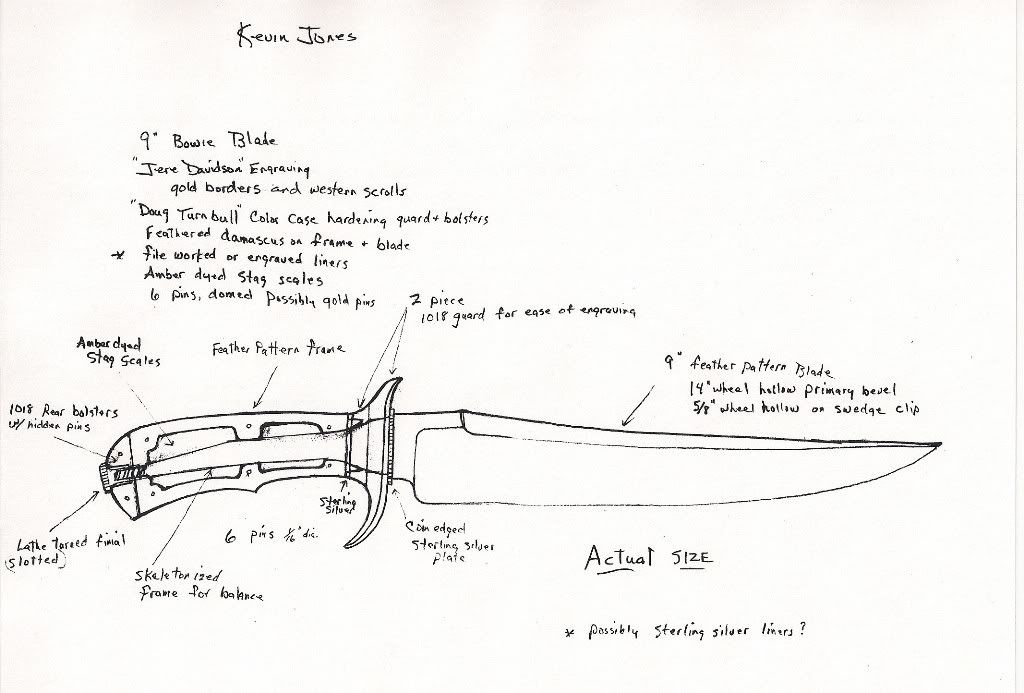 Kevin Jones
9" Bowie Blade
"Jere Davidson" Engraving
gold borders and western scrolls
"Doug Turnbull" Color Case hardening guard + bolsters
Feathered damascus on frame + blade
* file worked or engraved liners
Amber dyed Stag scales
6 pins, domed Possibly gold pins
2 piece
1018 guard for ease of engraving
Amber dyed
Stag Scales
Feather Pattern frame
9" feather pattern Blade
14" wheel hollow primary bevel
5/8" wheel hollow on swedge clip
1018 Rear bolsters
w/ hidden pins
Sterling
Silver
Lathe turned finial
(slotted)
6 pins 1/16" dia.
Coin edged
Sterling silver
plate
Skeletonized
frame for balance
Actual SIZE
* possibly Sterling silver liners?